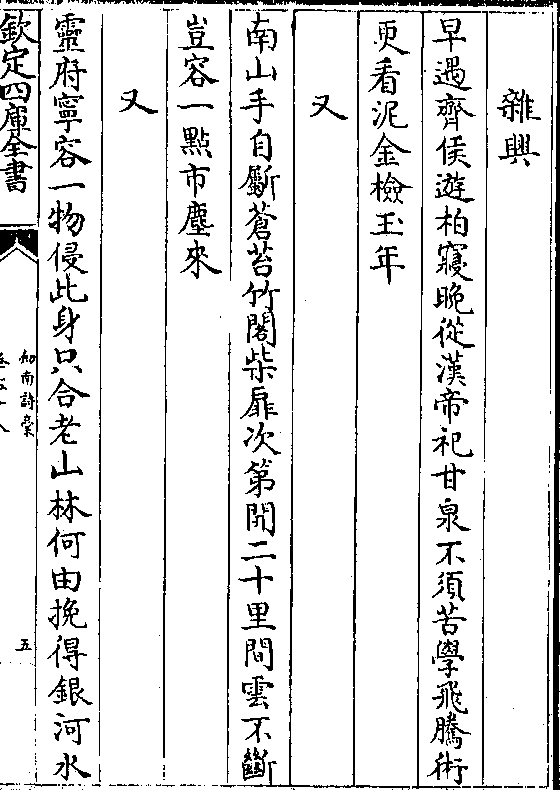 雜興
早遇齊侯遊柏寢晚從漢帝祀甘泉不須苦學飛騰術
更看泥金檢玉年
又
南山手自斸蒼苔竹閣柴扉次第開二十里間雲不斷
豈容一點市塵來
又
靈府寧容一物侵此身只合老山林何由挽得銀河水
欽定四庫全書
劒南詩稾
五